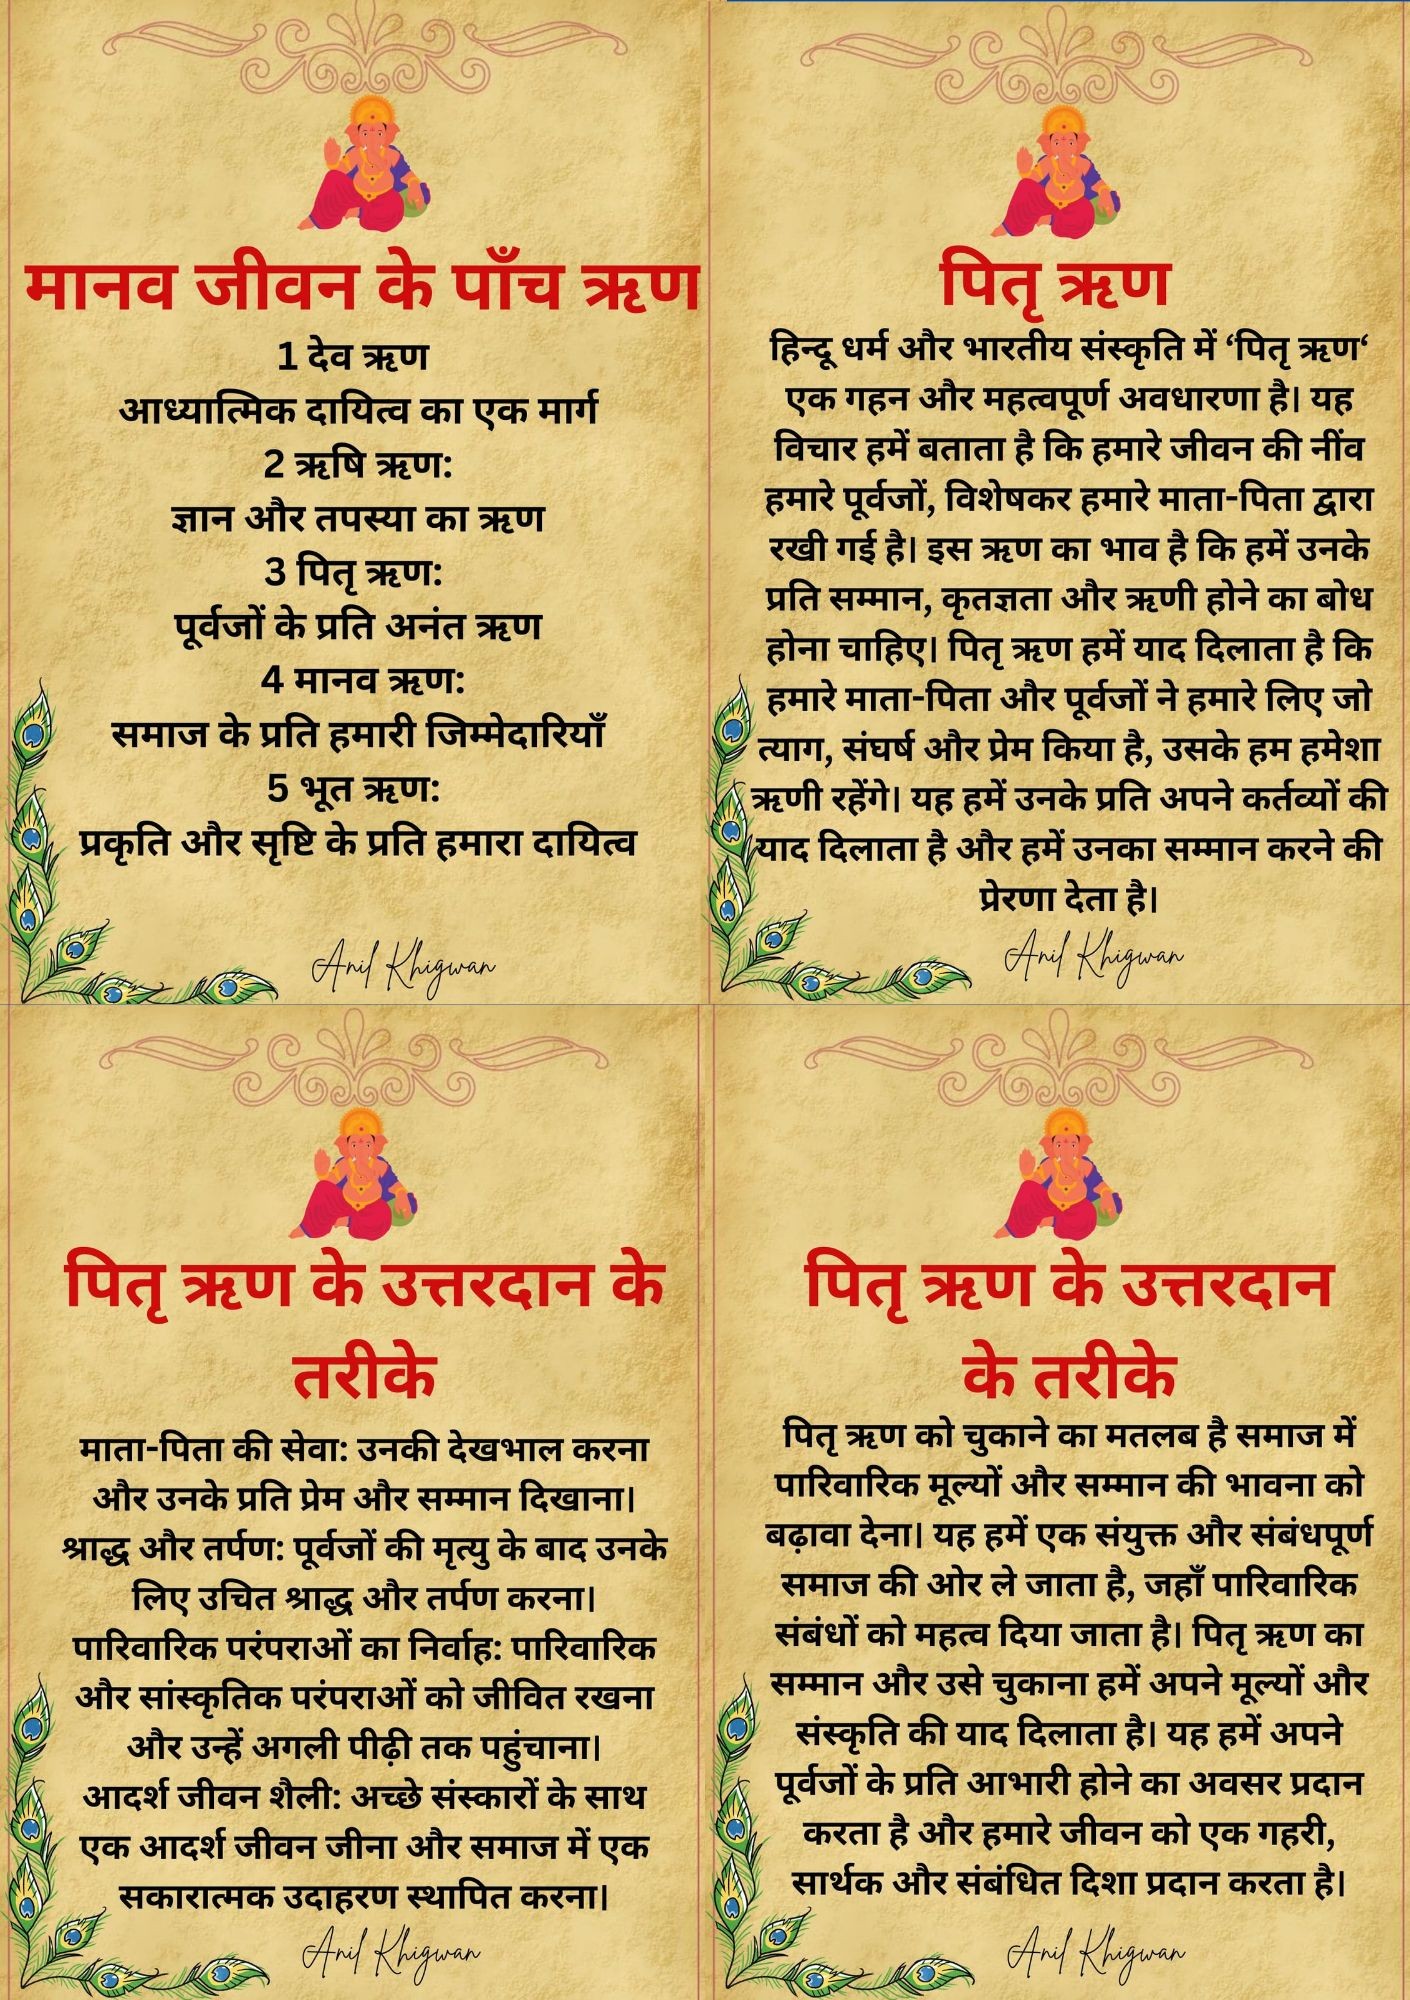 मानव जीवन के पाँच ऋण
1 देव ऋण
आध्यात्मिक दायित्व का एक मार्ग
2 ऋषि ऋण:
ज्ञान और तपस्या का ऋण
3 पितृ ऋण:
पूर्वजों के प्रति अनंत ऋण
4 मानव ऋण:
समाज के प्रति हमारी जिम्मेदारियाँ
5 भूत ऋण:
प्रकृति और सृष्टि के प्रति हमारा दायित्व
Anil Khigwan
पितृ ऋण
हिन्दू धर्म और भारतीय संस्कृति में ‘पितृ ऋण‘
एक गहन और महत्वपूर्ण अवधारणा है। यह
विचार हमें बताता है कि हमारे जीवन की नींव
हमारे पूर्वजों, विशेषकर हमारे माता-पिता द्वारा
रखी गई है। इस ऋण का भाव है कि हमें उनके
प्रति सम्मान, कृतज्ञता और ऋणी होने का बोध
होना चाहिए। पितृ ऋण हमें याद दिलाता है कि
हमारे माता-पिता और पूर्वजों ने हमारे लिए जो
त्याग, संघर्ष और प्रेम किया है, उसके हम हमेशा
ऋणी रहेंगे। यह हमें उनके प्रति अपने कर्तव्यों की
याद दिलाता है और हमें उनका सम्मान करने की
प्रेरणा देता है।
Anil Khigwan
पितृ ऋण के उत्तरदान के
तरीके
माता-पिता की सेवा: उनकी देखभाल करना
और उनके प्रति प्रेम और सम्मान दिखाना।
श्राद्ध और तर्पण: पूर्वजों की मृत्यु के बाद उनके
लिए उचित श्राद्ध और तर्पण करना।
पारिवारिक परंपराओं का निर्वाह: पारिवारिक
और सांस्कृतिक परंपराओं को जीवित रखना
और उन्हें अगली पीढ़ी तक पहुंचाना।
आदर्श जीवन शैली: अच्छे संस्कारों के साथ
एक आदर्श जीवन जीना और समाज में एक
सकारात्मक उदाहरण स्थापित करना।
Anil Khigwan
पितृ ऋण के उत्तरदान
के तरीके
पितृ ऋण को चुकाने का मतलब है समाज में
पारिवारिक मूल्यों और सम्मान की भावना को
बढ़ावा देना। यह हमें एक संयुक्त और संबंधपूर्ण
समाज की ओर ले जाता है, जहाँ पारिवारिक
संबंधों को महत्व दिया जाता है। पितृ ऋण का
सम्मान और उसे चुकाना हमें अपने मूल्यों और
संस्कृति की याद दिलाता है। यह हमें अपने
पूर्वजों के प्रति आभारी होने का अवसर प्रदान
करता है और हमारे जीवन को एक गहरी,
सार्थक और संबंधित दिशा प्रदान करता है।
Anil Khigwan